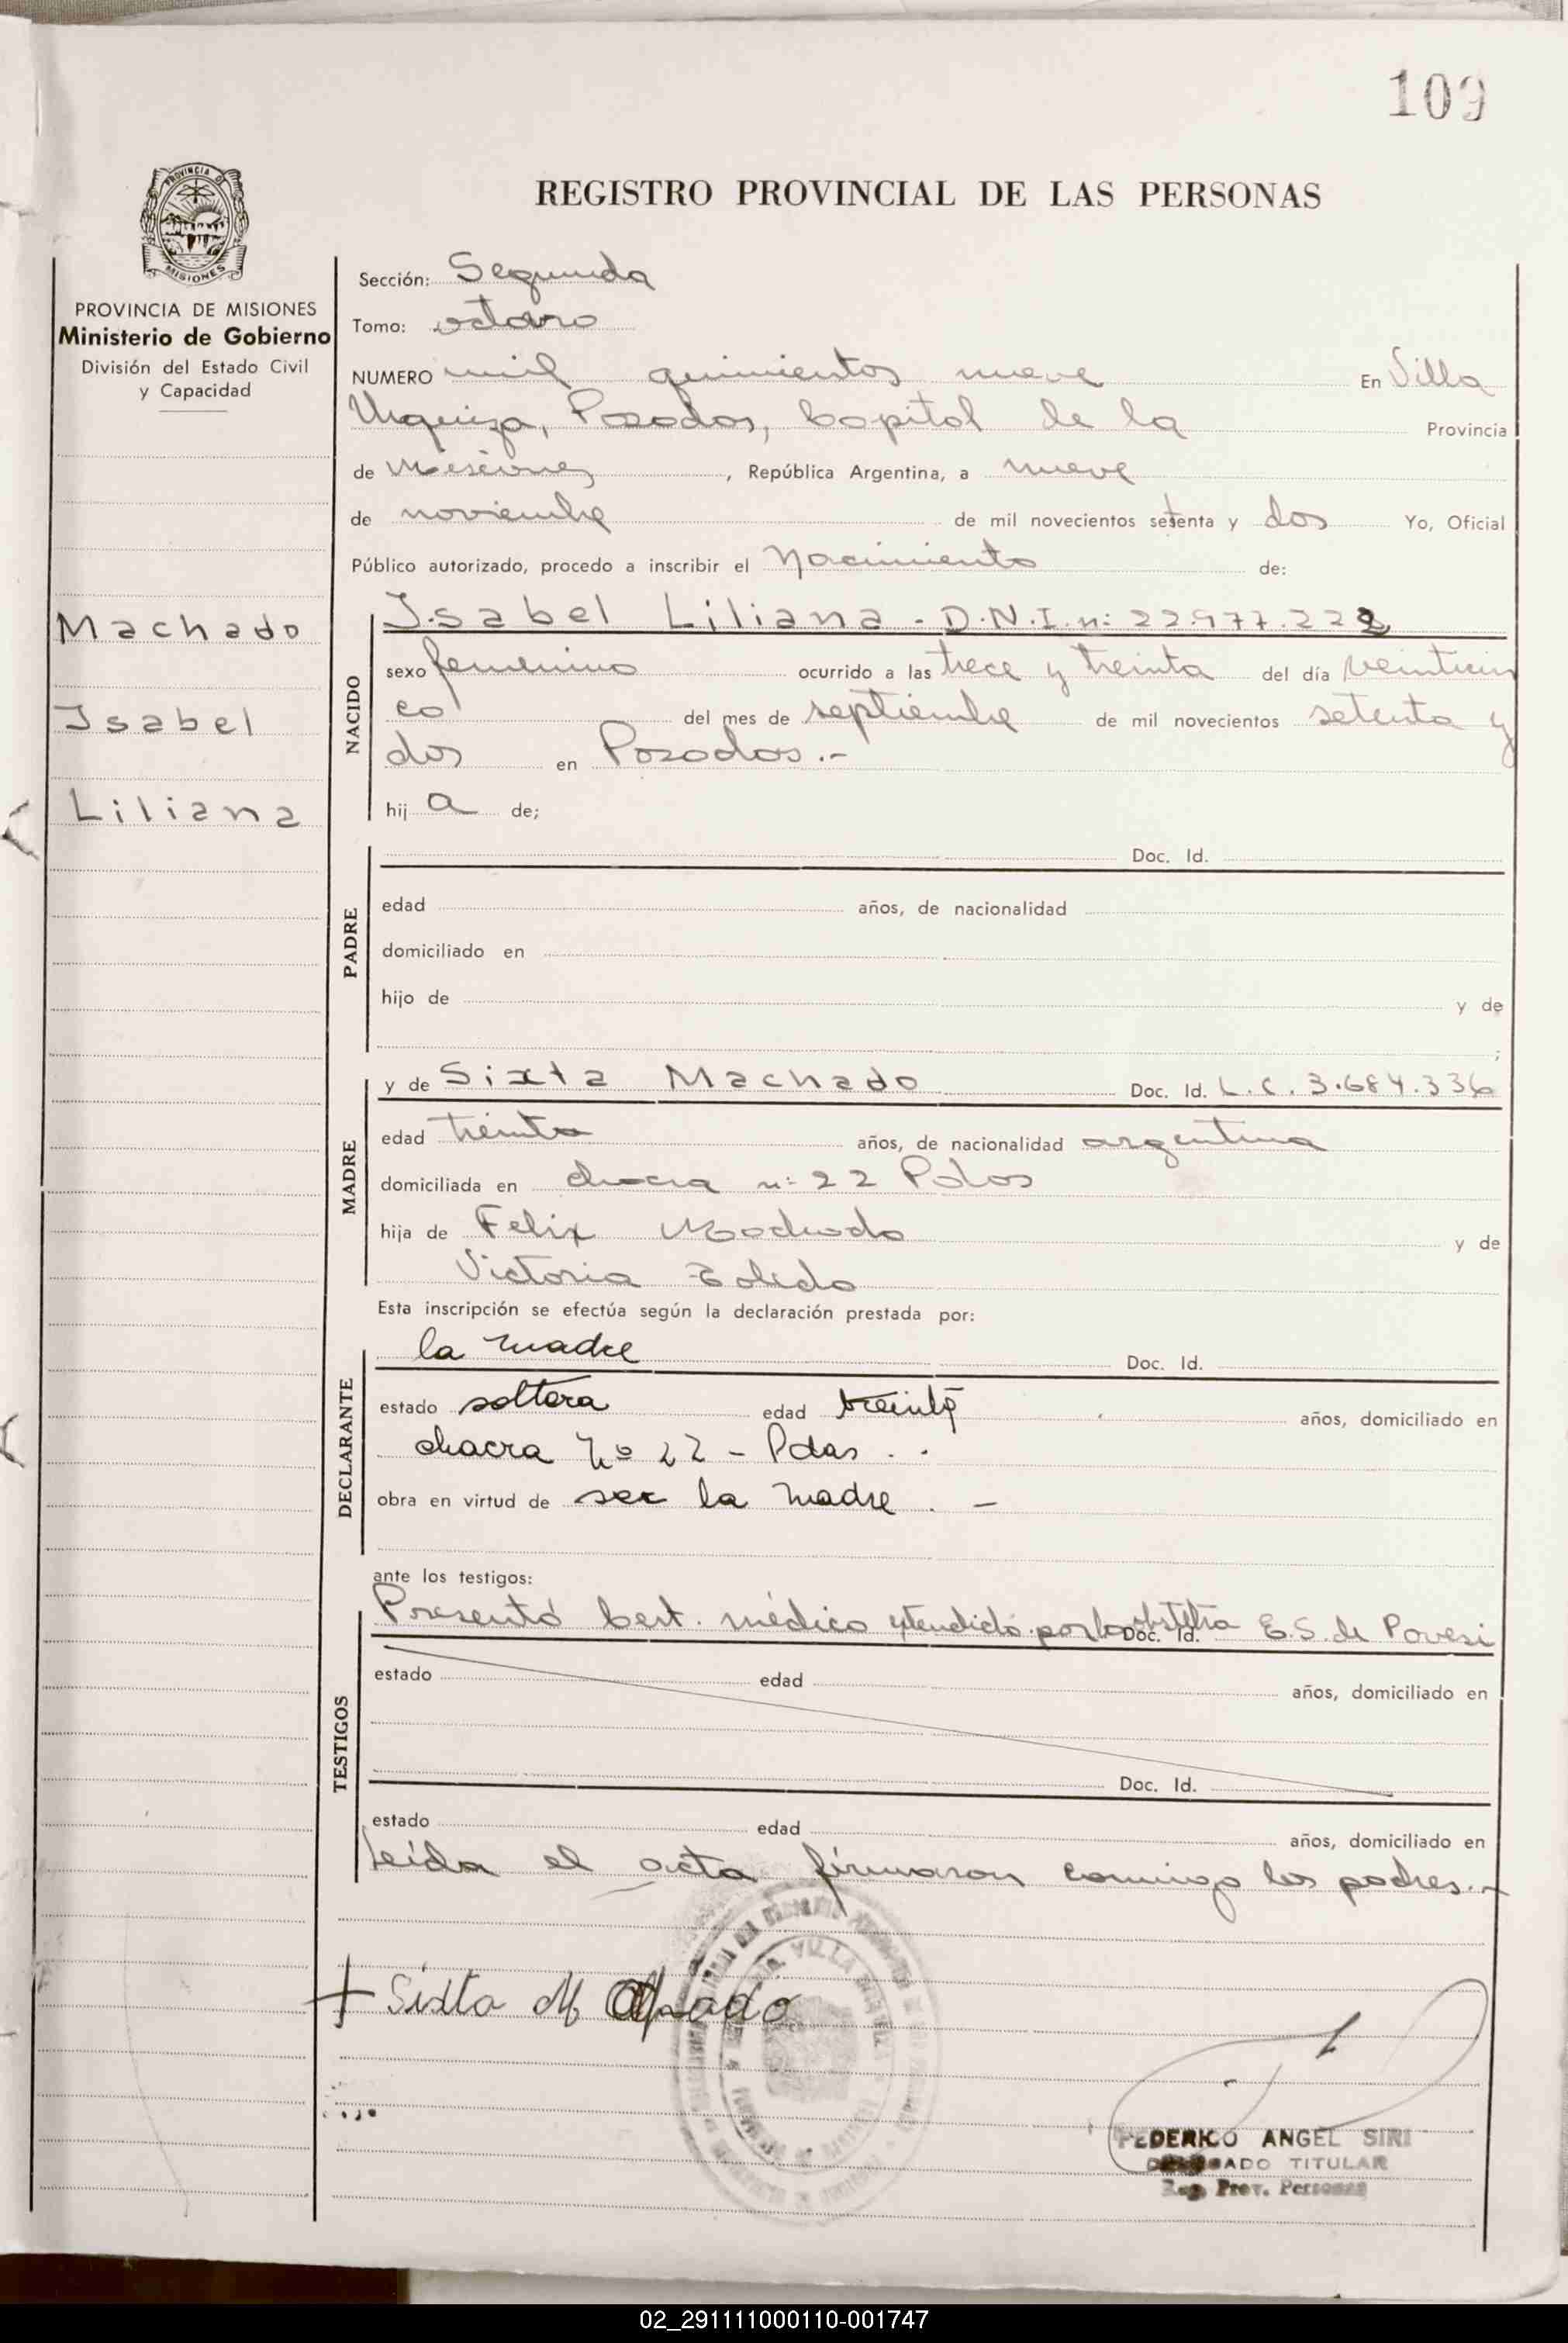 109
REGISTRO PROVINCIAL DE LAS PERSONAS
PROVINCIA DE MISIONES
Ministerio de Gobierno
División del Estado Civil
y Capacidad
Machado
Isabel
Liliana
Sección: Segunda
Tomo: octavo
NUMERO mil quinientos nueve En Villa
Urquiza, Posadas, Capital de la Provincia
de Misiones, República Argentina, a nueve
de noviembre de mil novecientos setenta y dos Yo, Oficial
Público autorizado, procedo a inscribir el Nacimiento de:
NACIDO
Isabel Liliana - D.N.I. n: 22.977.222
sexo femenino ocurrido a las trece y treinta del día veinticin
co del mes de septiembre de mil novecientos setenta y
dos en Posadas.-
hij a de;
PADRE
Doc. Id.
edad años, de nacionalidad
domiciliado en
hijo de y de
;
MADRE
y de Sixta Machado Doc. Id. L.C. 3.684.336
edad treinta años, de nacionalidad argentina
domiciliada en chacra n: 22 Pdas
hija de Felix Machado y de
Victoria Toledo
Esta inscripción se efectúa según la declaración prestada por:
DECLARANTE
la madre Doc. Id.
estado soltera edad treinta años, domiciliado en
chacra Nº 22 - Pdas.
obra en virtud de ser la madre. -
ante los testigos:
TESTIGOS
Presentó Cert. médico extendido por la obstetra E.S. de Pavesi
Doc. Id.
estado edad años, domiciliado en
Doc. Id.
estado edad años, domiciliado en
Leída el acta firmaron conmigo los padres.-
+ Sixta M
FEDERICO ANGEL SIRI
DELEGADO TITULAR
Reg. Prov. Personas
02_291111000110-001747